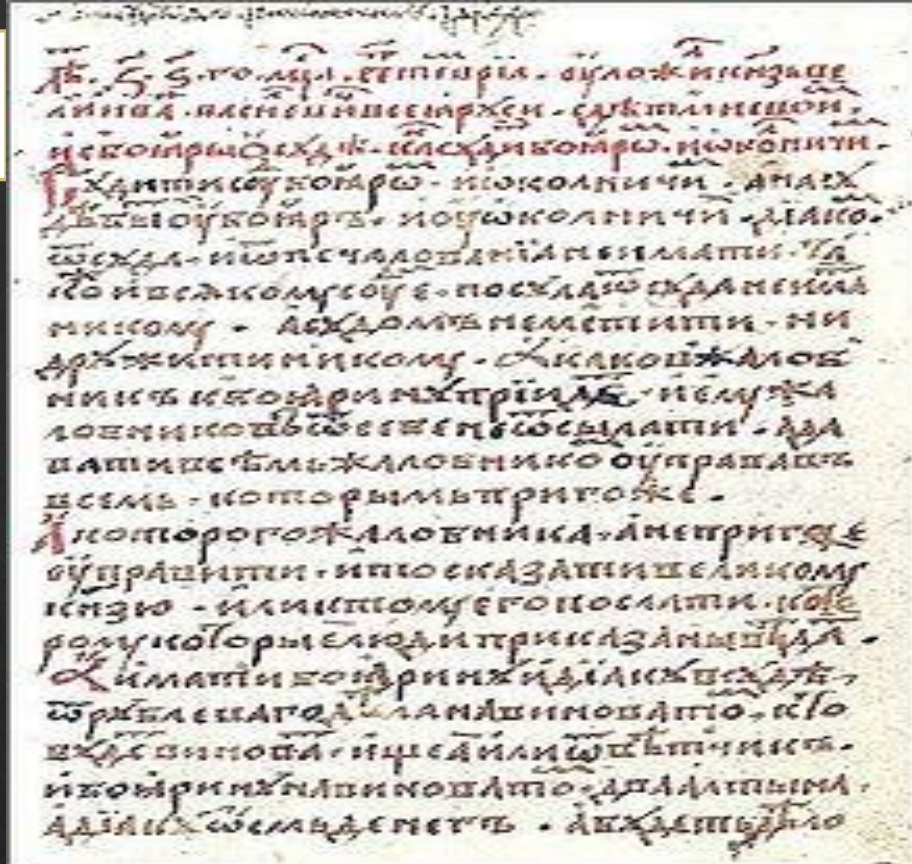 лѣ ҂з҃ ѕ҃ го мца септеврїа оуложи кнзь ве
ликїи ива василиеви всеа рүси с дѣтми свои
и с боары о сүдѣ ка сүди боарѡ и ѡколничи
Сүдити сү боарѡ и ѡколничи а на сү
быти оу боаръ и оу ѡколничи дїако
ѿ сүда и ѿ печалованїа не имати та
ко и всякому сүе посүла ѿ сүда не има
никому а сүдомъ не мьстити ни
дрүжити никому а каков жалоб
никъ к боаринү прїиде и ему жа
лобниковъ ѿ себе не ѿсылати а да
вати всѣмь жалобнико оуправа въ
всемь которымь пригоже
а которого жалобника а непригоже
оуправити и то сказати великому
кнзю или к тому его послати кото
рому которые люди приказаны вѣда
а имати боаринү и дїакү в сүдѣ
ѿ рүблеваго дѣла на виновато кто
бүде винова ищеа или ѿвѣтчикъ
и боаринү на виновато два алтына
а дїакү ѡсмь денегъ а бүдеть дѣло